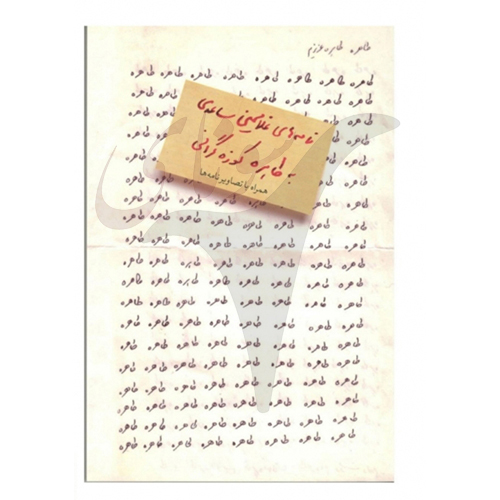 طاهره، طاهره عزیزم
طاهره طاهره طاهره طاهره طاهره طاهره طاهره طاهره
طاهره طاهره طاهره طاهره طاهره طاهره طاهره
نامه‌های غلامحسین ساعدی
به طاهره کوزه‌گرانی
همراه با تصاویر نامه‌ها
طاهره طاهره طاهره طاهره طاهره طاهره طاهره طاهره
طاهره طاهره طاهره طاهره طاهره طاهره طاهره طاهره
طاهره طاهره طاهره طاهره طاهره طاهره طاهره طاهره
طاهره طاهره طاهره طاهره طاهره طاهره طاهره طاهره
طاهره طاهره طاهره طاهره طاهره طاهره طاهره طاهره
طاهره طاهره طاهره طاهره طاهره طاهره طاهره طاهره
طاهره طاهره طاهره طاهره طاهره طاهره طاهره طاهره
طاهره طاهره طاهره طاهره طاهره طاهره طاهره طاهره
طاهره طاهره طاهره طاهره طاهره طاهره طاهره طاهره
طاهره طاهره طاهره طاهره طاهره طاهره طاهره طاهره
طاهره طاهره طاهره طاهره طاهره طاهره طاهره طاهره
طاهره طاهره طاهره طاهره طاهره طاهره طاهره طاهره